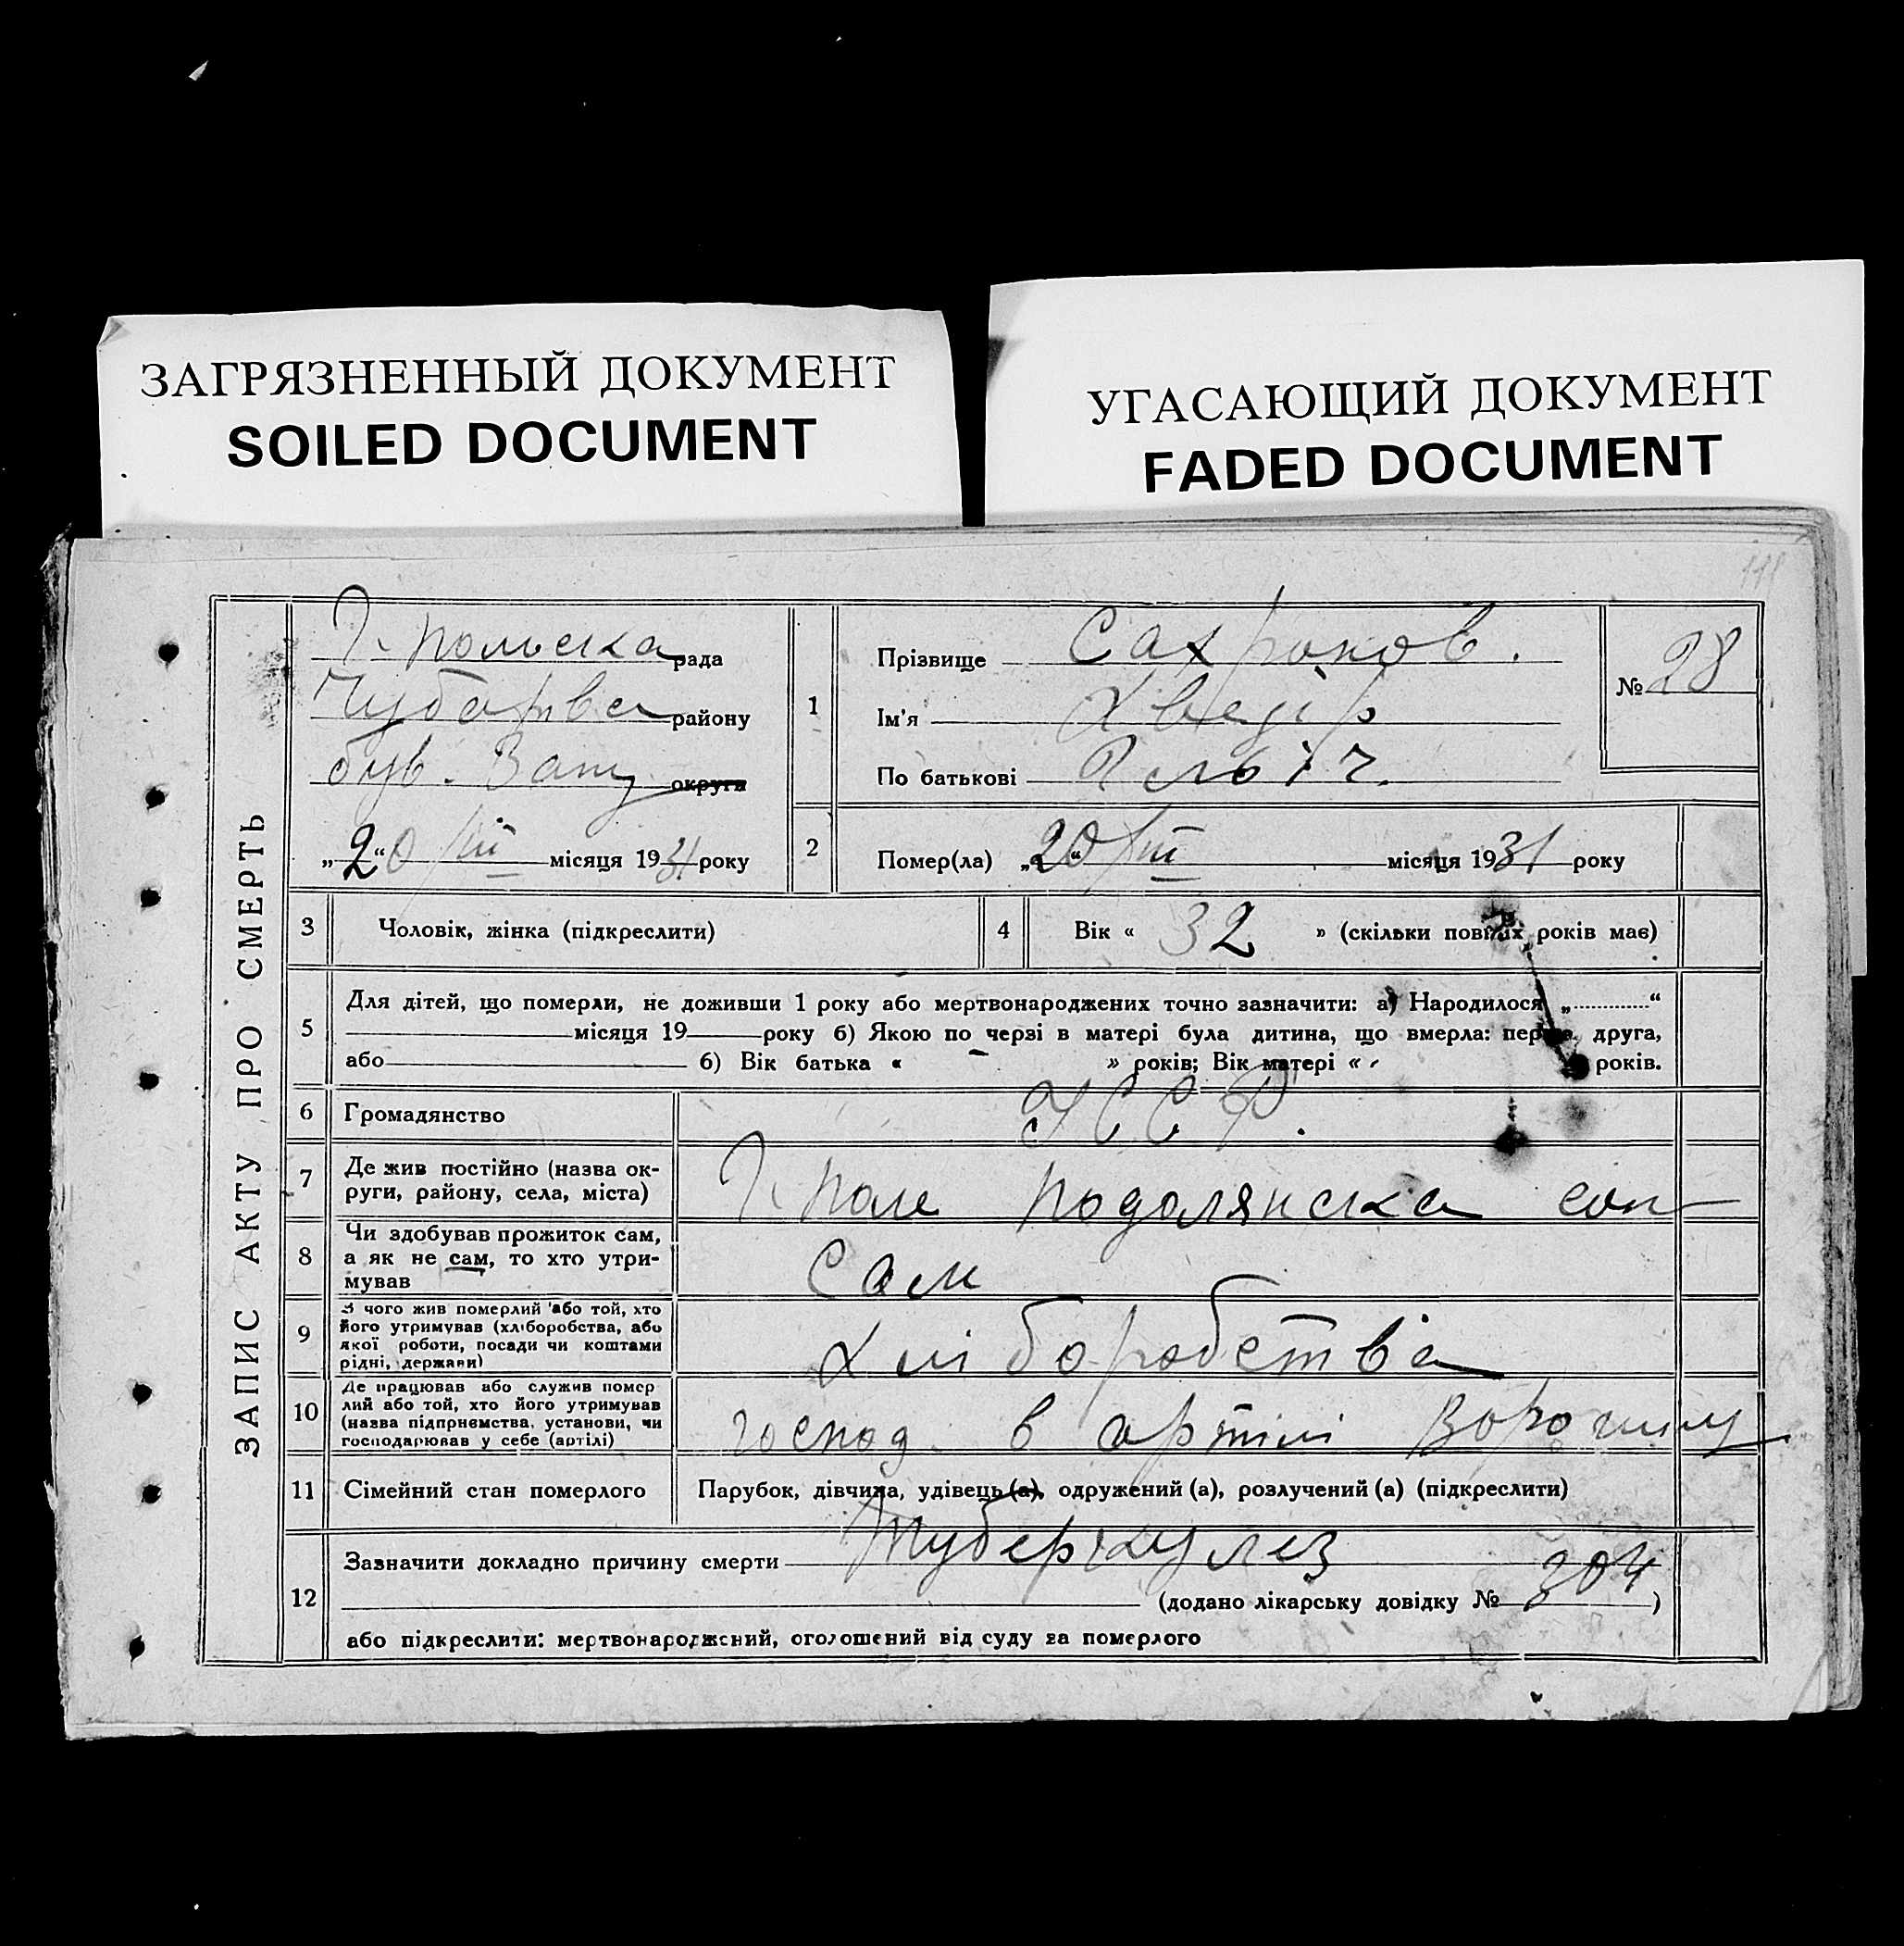 ЗАГРЯЗНЕННЫЙ ДОКУМЕНТ
SOILED DOCUMENT
УГАСАЮЩИЙ ДОКУМЕНТ
FADED DOCUMENT
ЗАПИС АКТУ ПРО СМЕРТЬ
Г. польска рада
району
був. Зап округи
„20“ /III місяця 1931 року
1
Прізвище Сахронов.
Ім'я Хведір
По батькові
№ 28
2
Помер(ла) „20“ /III місяця 1931 року
3 Чоловік, жінка (підкреслити)
4 Вік « 32 » (скільки повних років має)
5
Для дітей, що померли, не доживши 1 року або мертвонароджених точно зазначити: а) Народилося „ “
місяця 19 року б) Якою по черзі в матері була дитина, що вмерла: перша, друга,
або б) Вік батька « » років; Вік матері « років.
6 Громадянство УССР.
7 Де жив постійно (назва ок-
руги, району, села, міста)
Г. поле подолянска
8 Чи здобував прожиток сам,
а як не сам, то хто утри-
мував
Сам
9 З чого жив померлий або той, хто
його утримував (хліборобства, або
якої роботи, посади чи коштами
рідні, держави)
хліборобства
10 Де працював або служив помер
лий або той, хто його утримував
(назва підприємства, установи, чи
господарював у себе (артілі)
господ. в артілі
11 Сімейний стан померлого
Парубок, дівчина, удівець (а), одружений (а), розлучений (а) (підкреслити)
12
Зазначити докладно причину смерти Туберкулез
(додано лікарську довідку № 304 )
або підкреслити: мертвонароджений, оголошений від суду за померлого